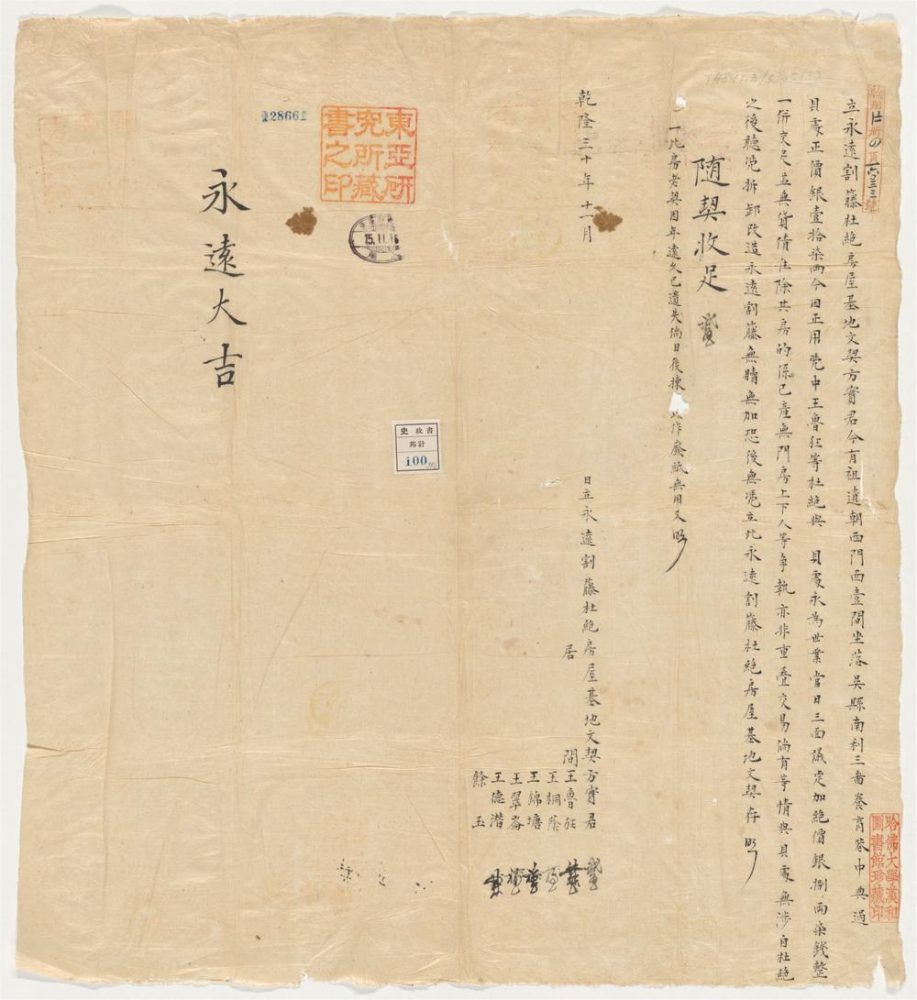 立永遠割藤杜絕房屋基地文契方賓君今有祖遺朝西門面壹間坐落吳縣南利三啚養育巷中典過
貝處正價銀壹拾柒兩今因正用凴中王魯狂等杜絕與 貝處永為世業當日三面議定加絕價銀捌兩柒錢整
一併交足並無貨債在除其房的係己產無門房上下人等爭執亦非重疊交易倘有等情與貝處無涉自杜絕
之後聽凴拆卸改造永遠割藤無贖無加恐後無凴立此永遠割藤杜絕房屋基地文契存照
随契收足
一此房老契因年遠久已遺失倘日後揀 此作廢紙無用又照
乾隆三十年十一月
日立永遠割藤杜絕房屋基地文契方賓君
居間王魯狂
王綱蔭
王錦塘
王翠
王德潛
餘玉
永遠大吉
東亞研究所藏書之印
28661
15.11.
史政書
邦計
100
哈佛大學漢和圖書館珍藏印